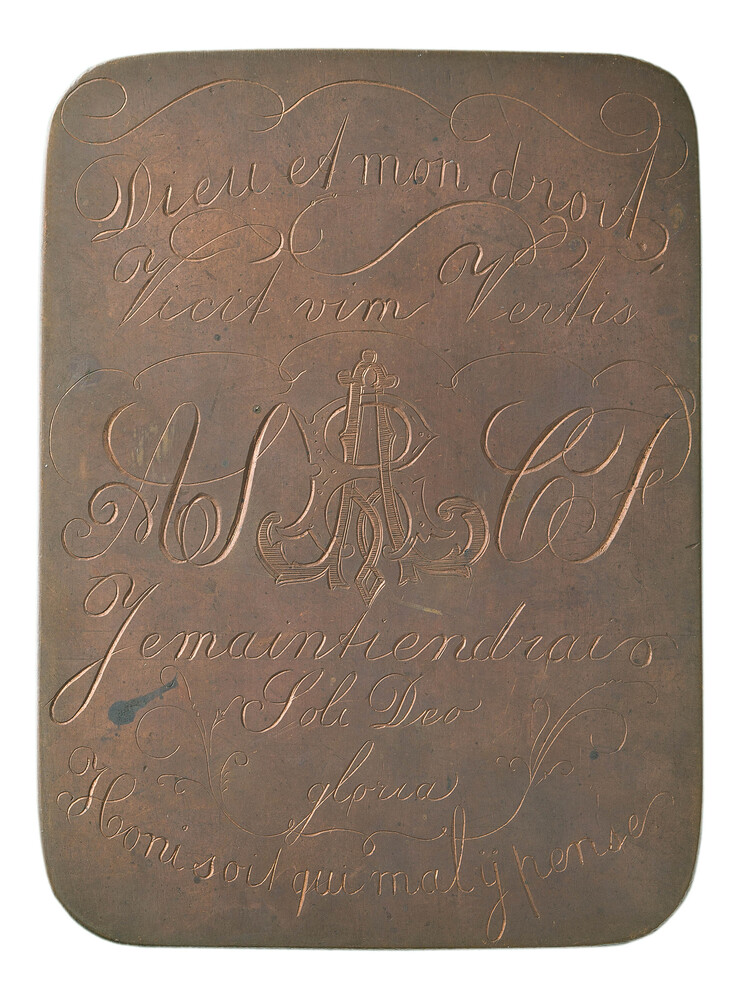 Dieu et mon droit
Vicit vim Vertis
Jemaintiendrai
Soli Deo
gloria
Honi soit qui mal ÿ pense